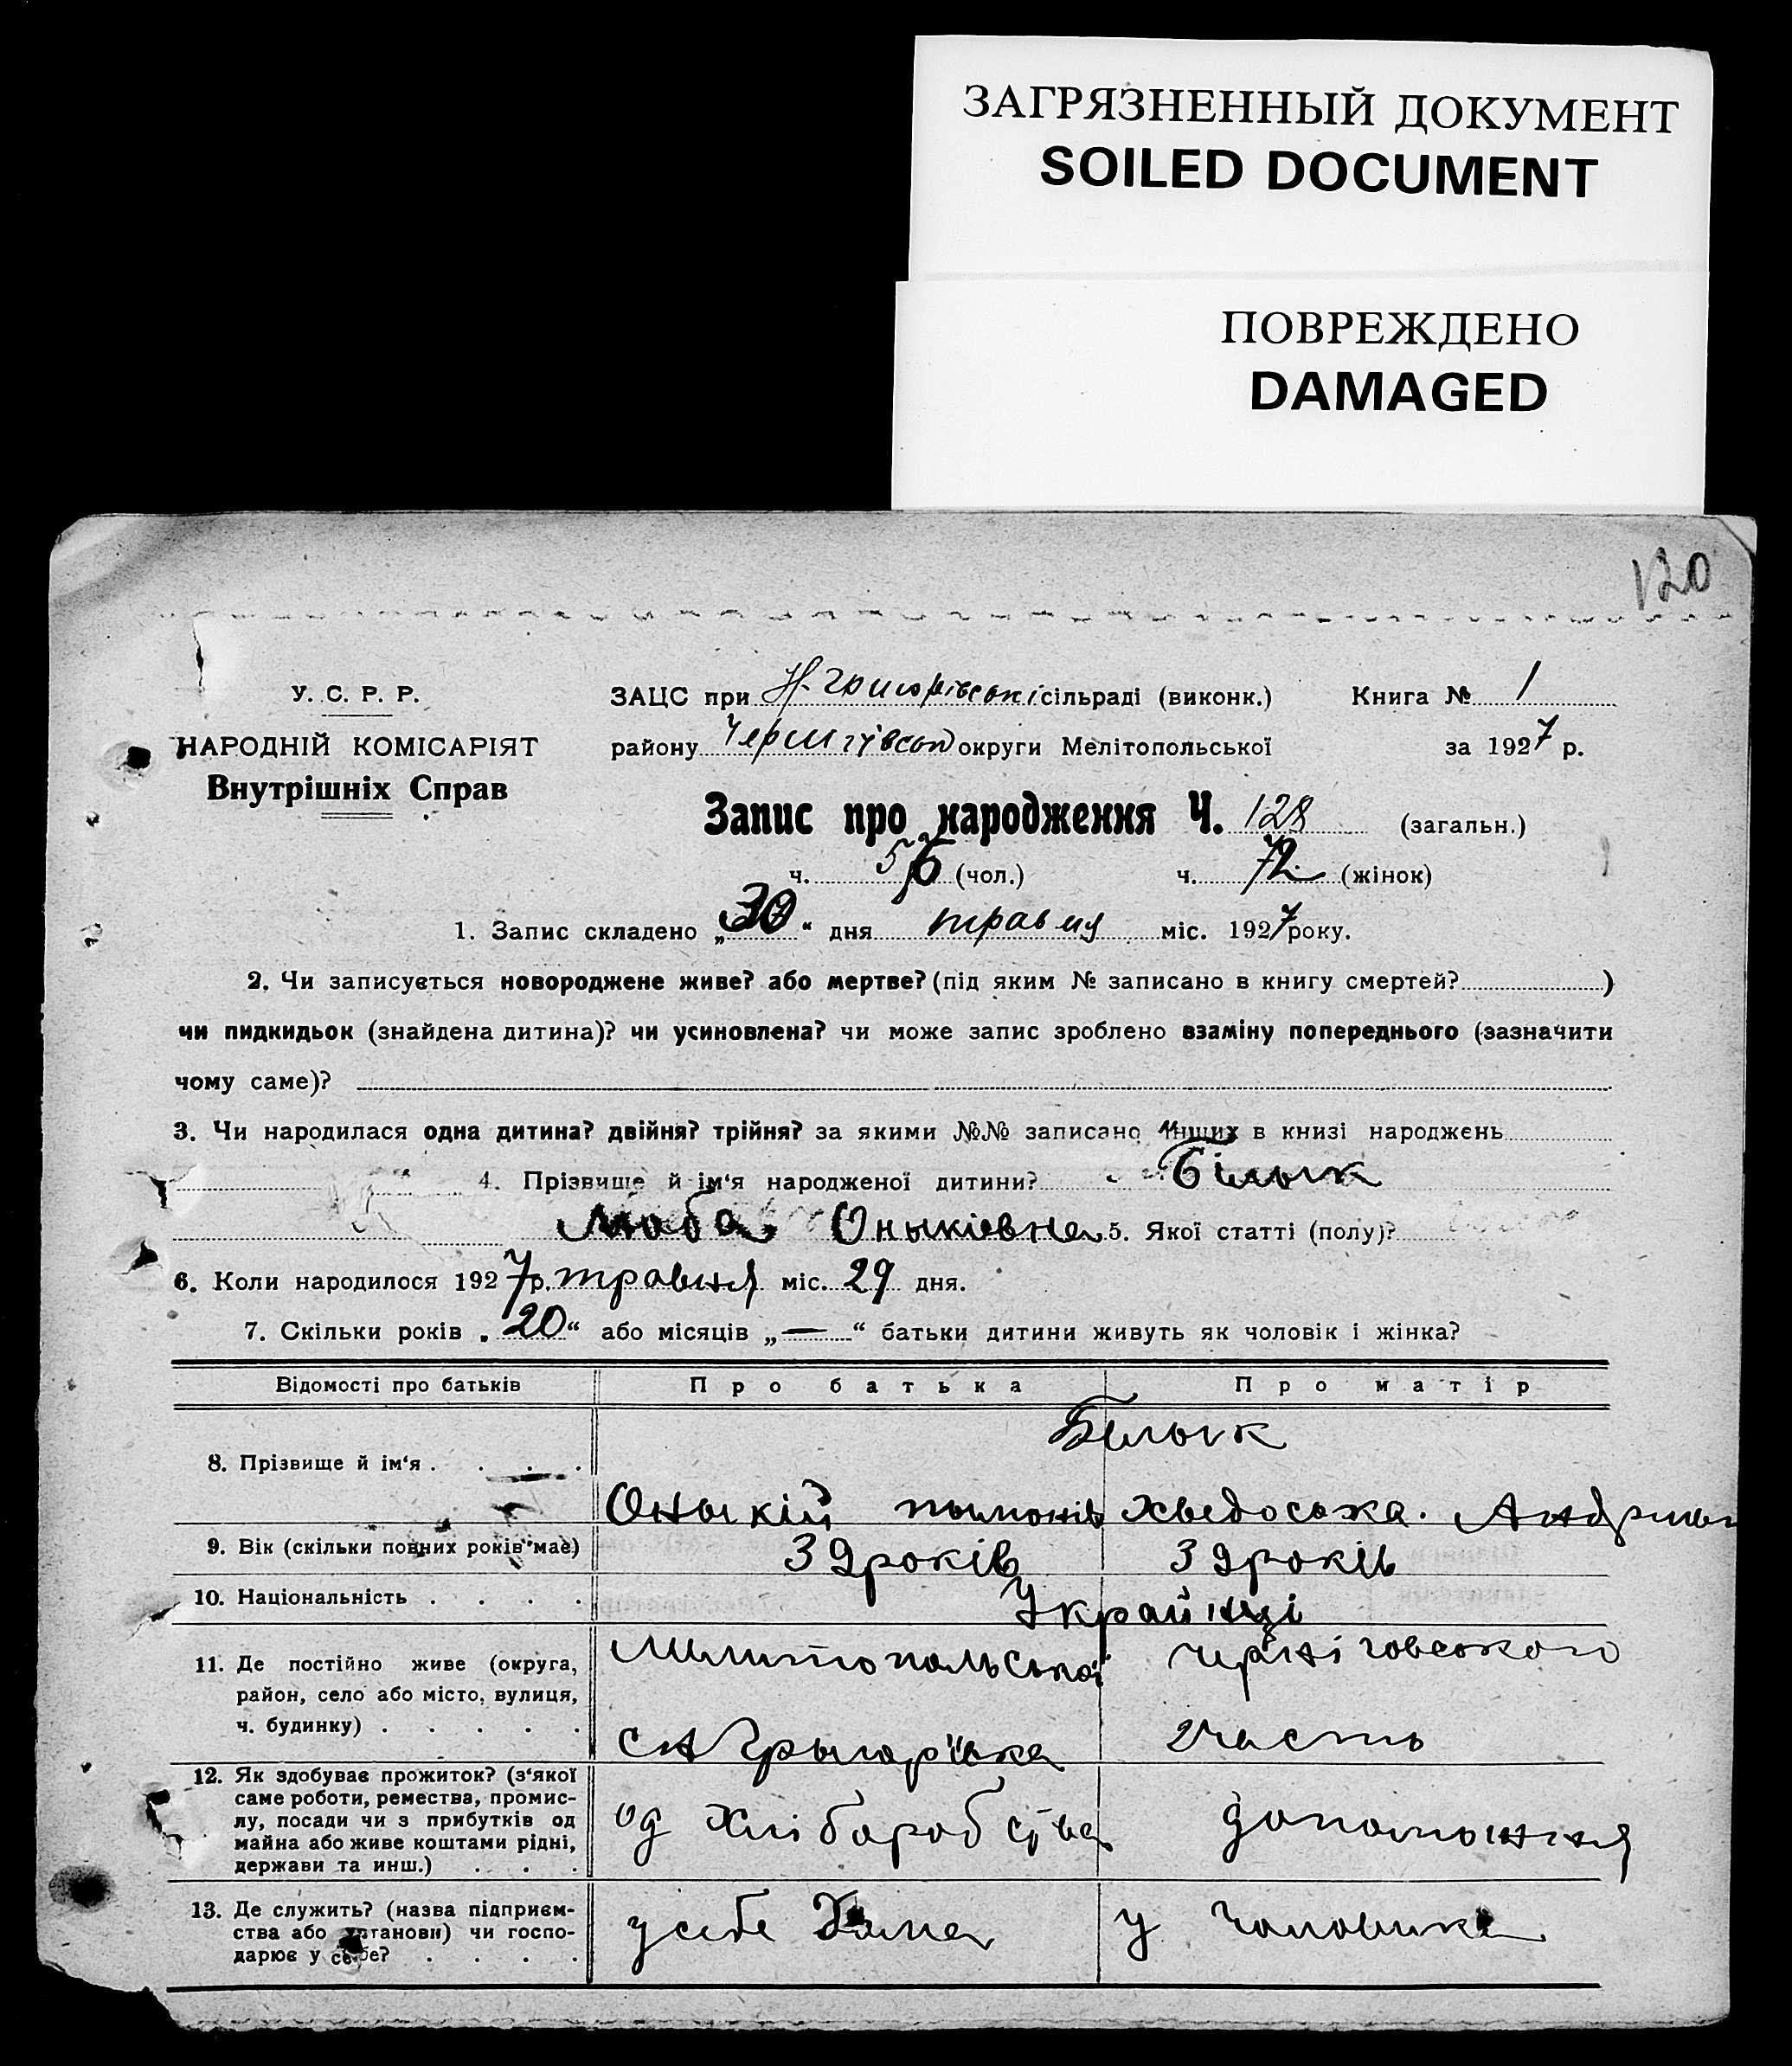 ЗАГРЯЗНЕННЫЙ ДОКУМЕНТ
SOILED DOCUMENT
ПОВРЕЖДЕНО
DAMAGED
120
У. С. Р. Р.
НАРОДНІЙ КОМІСАРІЯТ
Внутрішніх Справ
ЗАЦС при сільраді (виконк.) Книга № 1
району округи Мелітопольської за 1927 р.
Запис про народження Ч. 128 (загальн.)
ч. 56 (чол.) ч. 72 (жінок)
1. Запис складено „30“ дня травня міс. 1927 року.
2. Чи записується новороджене живе? або мертве? (під яким № записано в книгу смертей? )
чи пидкидьок (знайдена дитина)? чи усиновлена? чи може запис зроблено взаміну попереднього (зазначити
чому саме)?
3. Чи народилася одна дитина? двійня? трійня? за якими №№ записано инших в книзі народжень
4. Прізвище й ім‘я народженої дитини? Білык
Люба Оныкіевна 5. Якої статті (полу)?
6. Коли народилося 1927 р. травня міс. 29 дня.
7. Скільки років „20“ або місяців „—“ батьки дитини живуть як чоловік і жінка?
Відомості про батьків Про батька Про матір
8. Прізвище й ім‘я . . . . Білык
Оныкій Хведоська.
9. Вік (скільки повних років має) 39 років 39 років
10. Національність . . . . Українці
11. Де постійно живе (округа,
район, село або місто, вулиця,
ч. будинку) . . . . .
Милитопольської Черніговського
с Н Грыгорівка 2 часть
12. Як здобуває прожиток? (з‘якої
саме роботи, ремества, промис-
лу, посади чи з прибутків од
майна або живе коштами рідні,
держави та инш.) . . .
од хліборобства
13. Де служить? (назва підприєм-
ства або установи) чи госпо-
дарює у себе? . . . .
у себе у чоловика